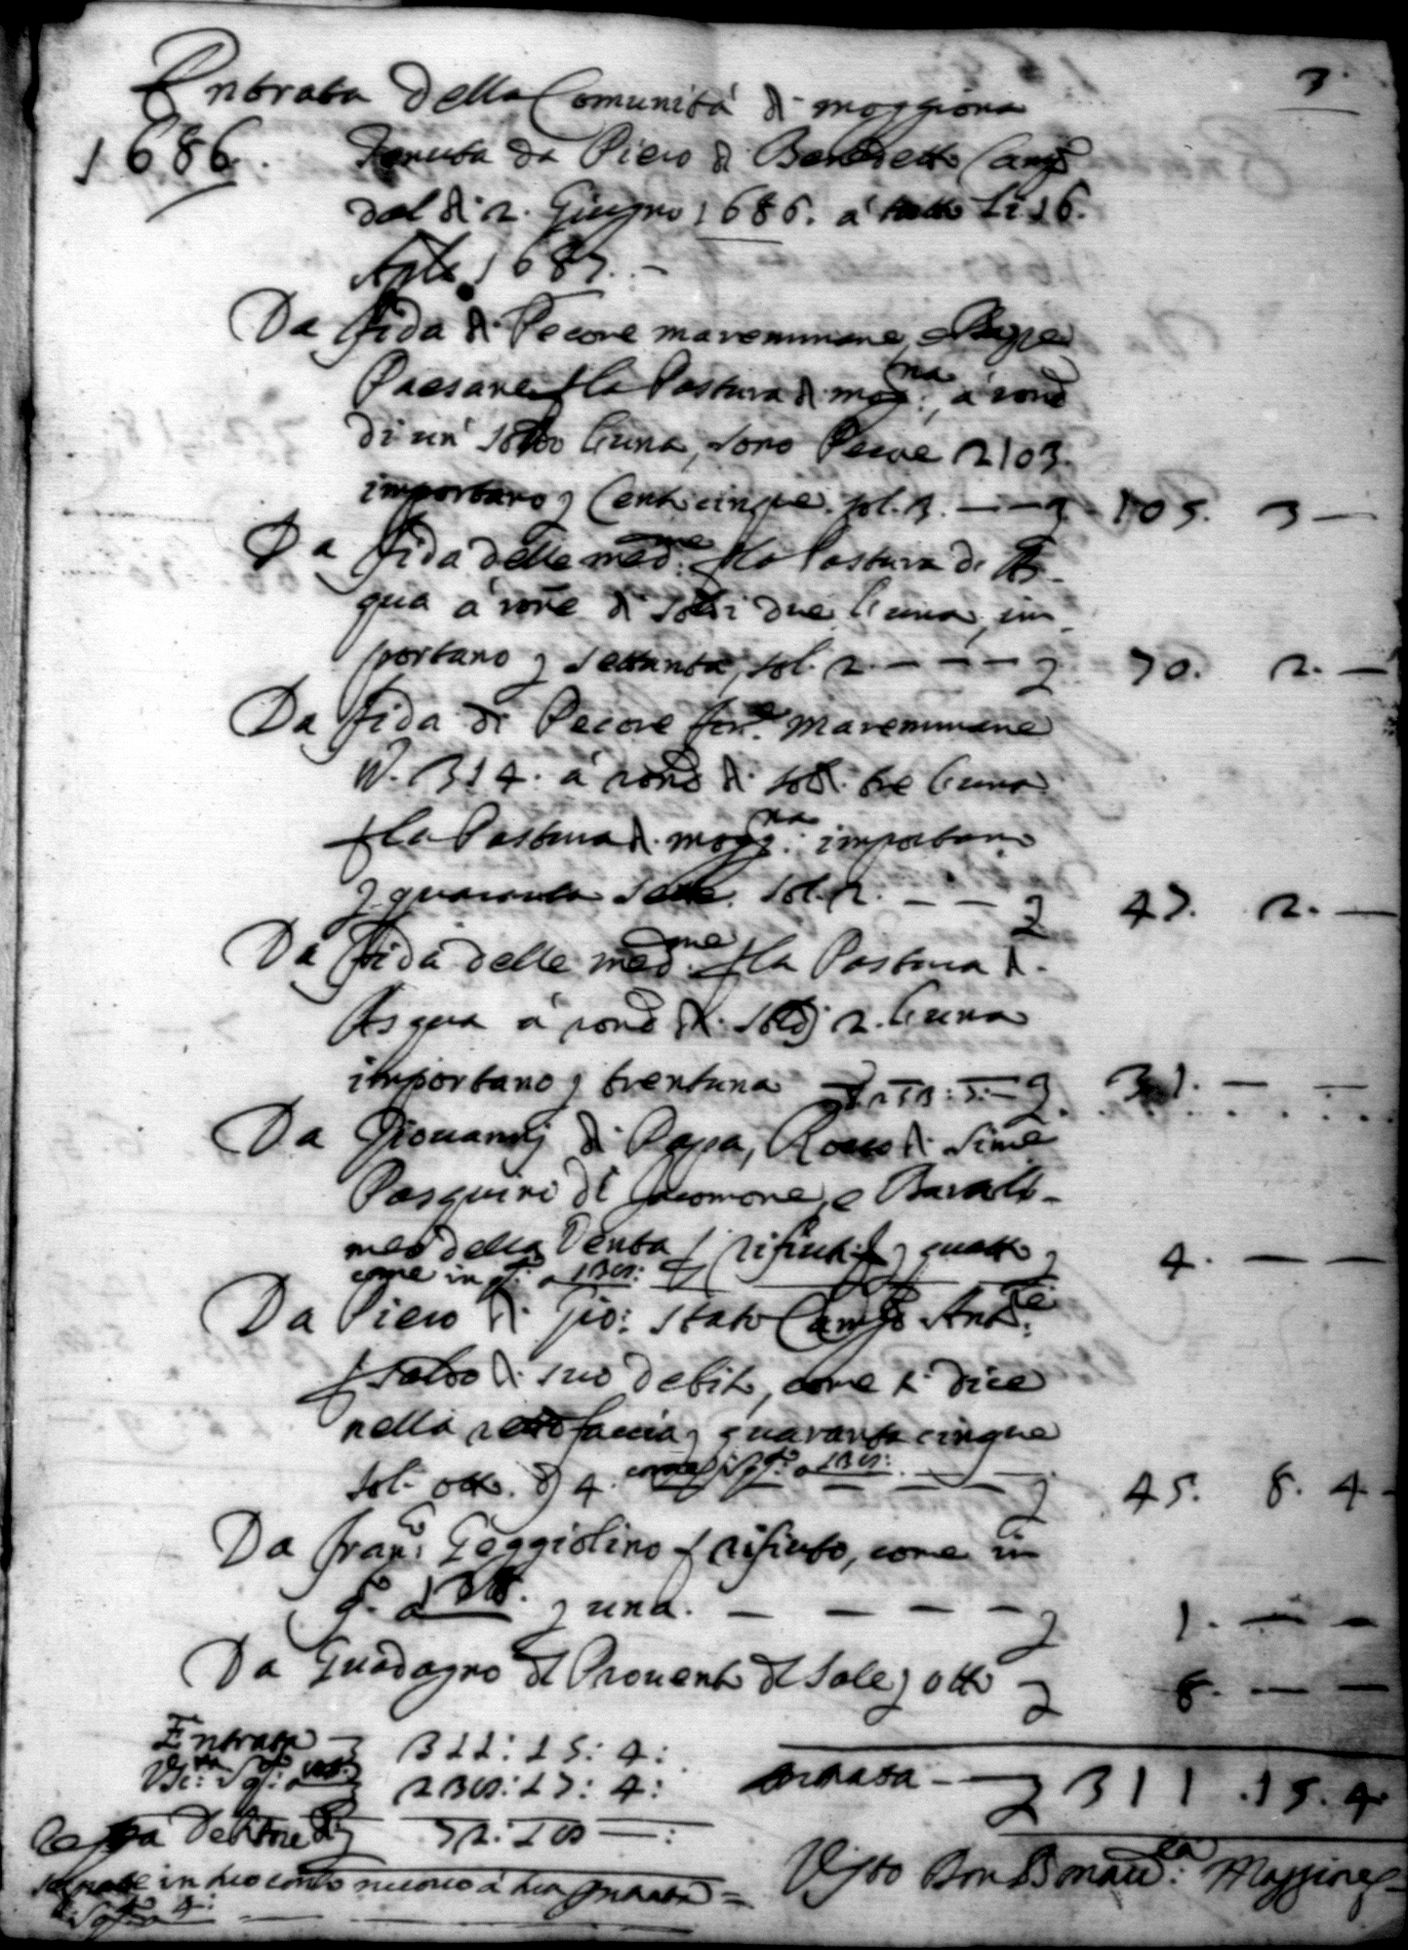 3
Entrata della Comunità di moggiona
1686. Tenuta da Piero di Benedetto Camp.
dal dì 2. Giugno 1686. à tutto li 16.
Aple 1687. –
Da fida di Pecore maremmane, e
Paesane la Pastura di mogg:na, à rone
di un' soldo l'una, sono Pecore 2103.
importano Cento cinque. sol. 3. – – 105. 3 –
Da fida delle med:me la Pastura di As-
qua à rone di soldi due l'una, im-
portano settanta, sol. 2. – – – 70. 2. –
Da fida di Pecore for:e maremmane
N. 314. à rone di sol. tre l'una
la Pastura di mogg:na importano
quaranta sette. sol. 2. – – 47. 2. –
Da fida delle med:me la Pastura di
Asqua à rone di soldi 2. l'una
importano trentuna 31. – –
Da Giouannj di Papa, Rosso di Sime
Pasquino di Jacomone, e Bartolo-
meo della Venta rifiuti quattro 4. – –
come in
Da Piero di Gio: stato Camp Ant:
saldo di suo debito, come si dice
nella retrofaccia, quaranta cinque
sol. otto. d 4. come 45. 8. 4 –
Da fran:co Peggiolino rifiuto, come in
una. – – – – 1. – –
Da Guadagno del Prouento del Sale otto 8. – –
Entrata 311: 15: 4:
Vsc:ta 238: 17: 4: entrata – 311. 15. 4.
Resta debitore 72: 18 – :
Visto Bon Bonacc: Maggiore